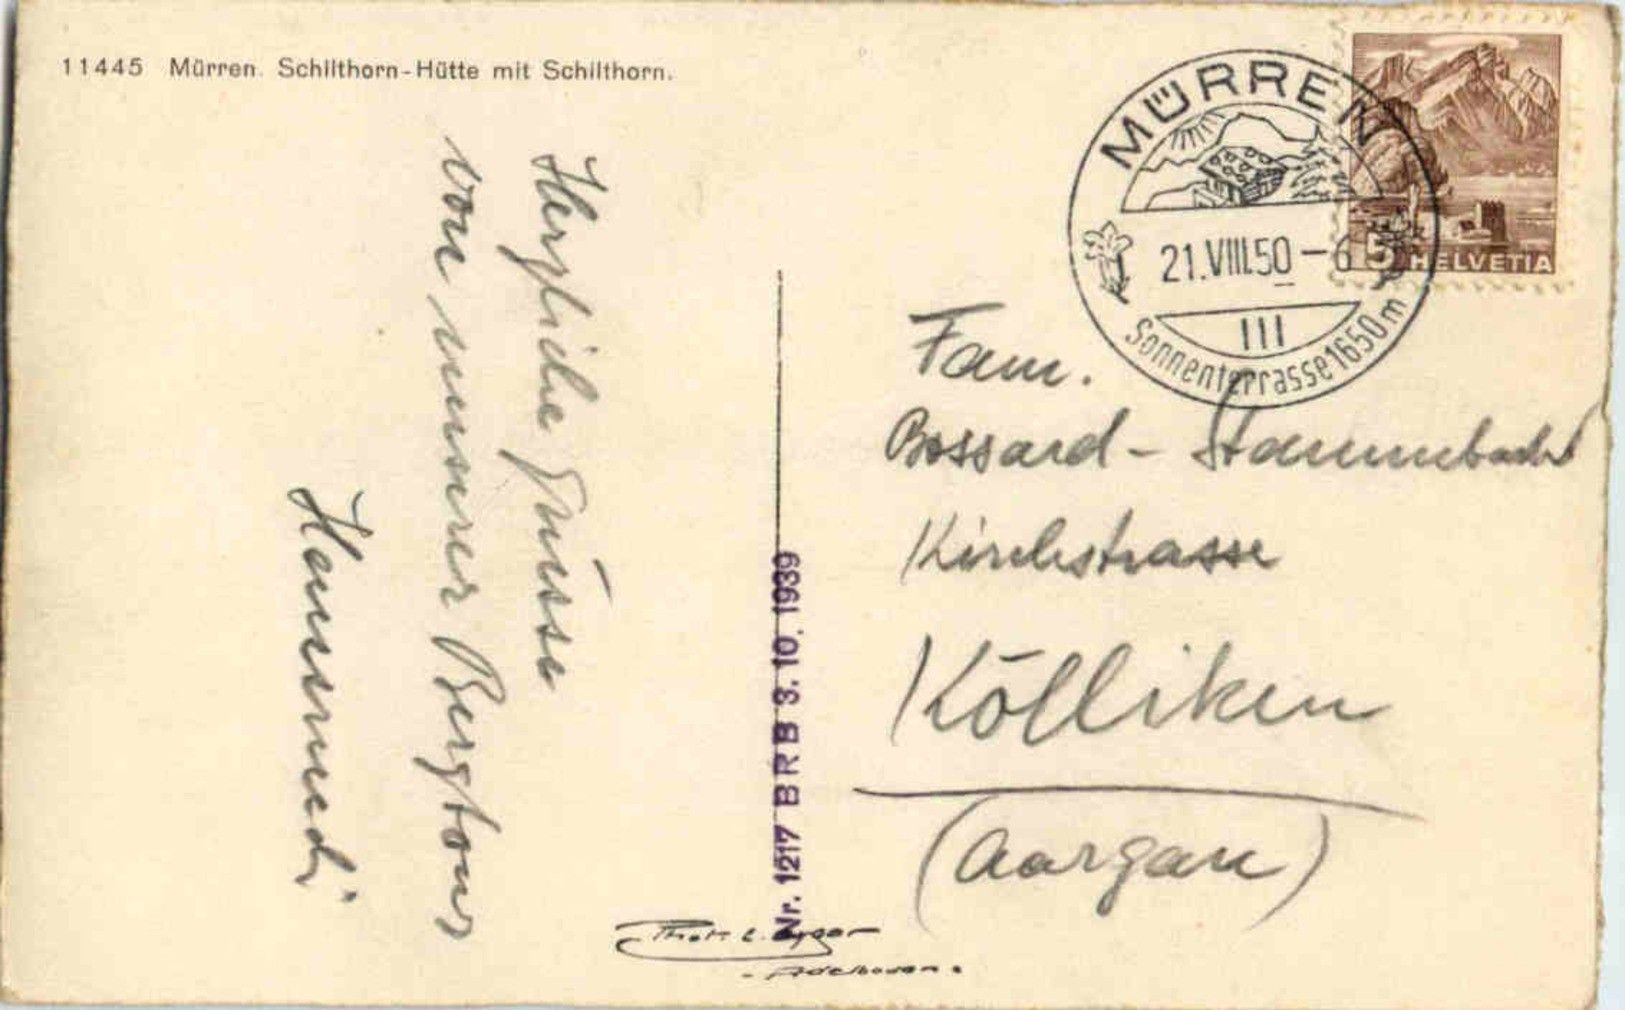 11445 Mürren. Schilthorn-Hütte mit Schilthorn.
Herzliche Grüsse
von unserer Bergtour
Hansruedi
MÜRREN
21.VIII.50 - 6
III
Sonnenterrasse 1650 m
5 HELVETIA
Fam.
Bossard - Stammbach
Kirchstrasse
Kölliken
(Aargau)
Nr. 1217 BRB 3. 10. 1939
Phot. E. Gyger
- Adelboden -